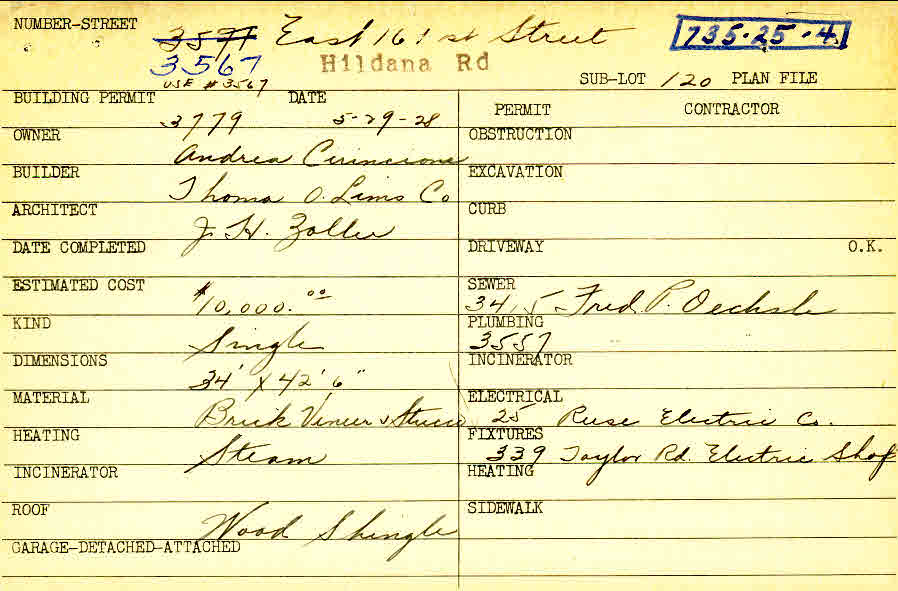 NUMBER-STREET 3571 East 161st Street 735-25-4
3567 Hildana Rd
USE #3567 SUB-LOT 120 PLAN FILE
BUILDING PERMIT DATE PERMIT CONTRACTOR
3779 5-29-28
OWNER Andrea Cirincione OBSTRUCTION
BUILDER Thoma O. Lims Co EXCAVATION
ARCHITECT J. H. Zoller CURB
DATE COMPLETED DRIVEWAY O.K.
ESTIMATED COST $10,000.00 SEWER 3415 Fred P. Oechsle
KIND Single PLUMBING 3557
DIMENSIONS 34' x 42' 6" INCINERATOR
MATERIAL Brick Veneer & Stucco ELECTRICAL 25 Ruse Electric Co.
HEATING Steam FIXTURES 339 Taylor Rd. Electric Shop
INCINERATOR HEATING
ROOF Wood Shingle SIDEWALK
GARAGE-DETACHED-ATTACHED